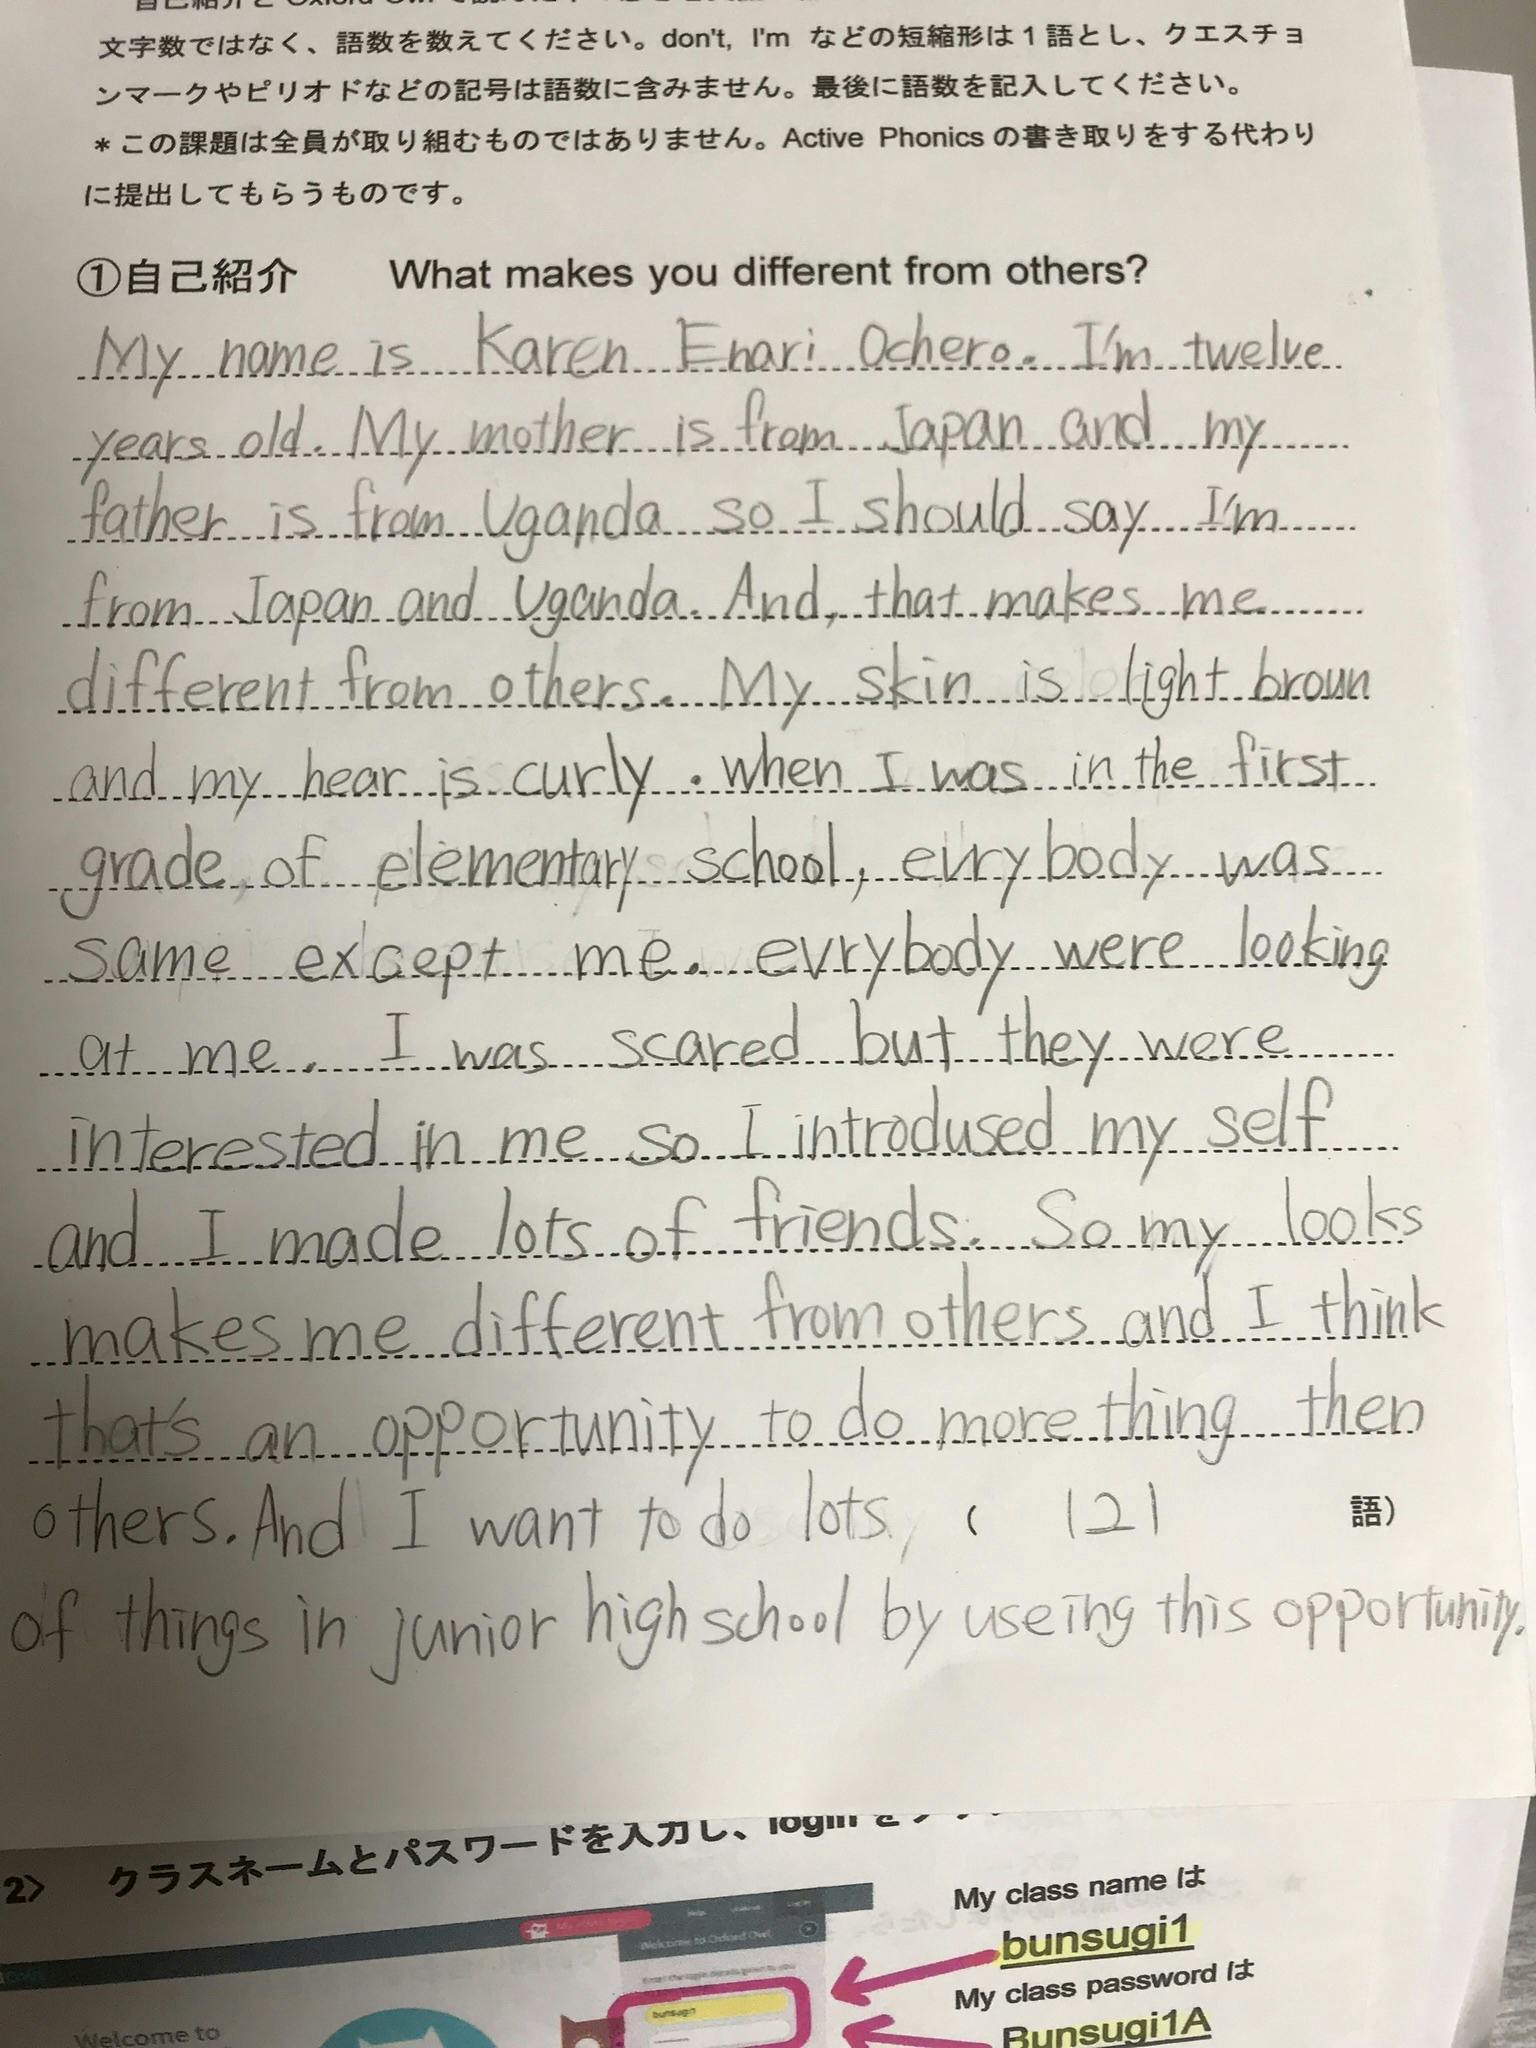 文字数ではなく、語数を数えてください。don't, I'm などの短縮形は1語とし、クエスチョ
ンマークやピリオドなどの記号は語数に含みません。最後に語数を記入してください。
*この課題は全員が取り組むものではありません。Active Phonicsの書き取りをする代わり
に提出してもらうものです。
①自己紹介 What makes you different from others?
My name is Karen Enari Ochero. I'm twelve
years old. My mother is from Japan and my
father is from Uganda so I should say I'm
from Japan and Uganda. And, that makes me
different from others. My skin is light broun
and my hear is curly. when I was in the first
grade, of elementary school, evrybody was
same except me. evrybody were looking
at me. I was scared but they were
interested in me so I introdused my self
and I made lots of friends. So my looks
makes me different from others and I think
that's an opportunity to do more thing then
others. And I want to do lots ( 121 語)
of things in junior high school by useing this opportunity.
2> クラスネームとパスワードを入力し、login を
My class name は
bunsugi1
My class password は
Bunsugi1A
Welcome to Oxford Owl
bunsugi1
Welcome to